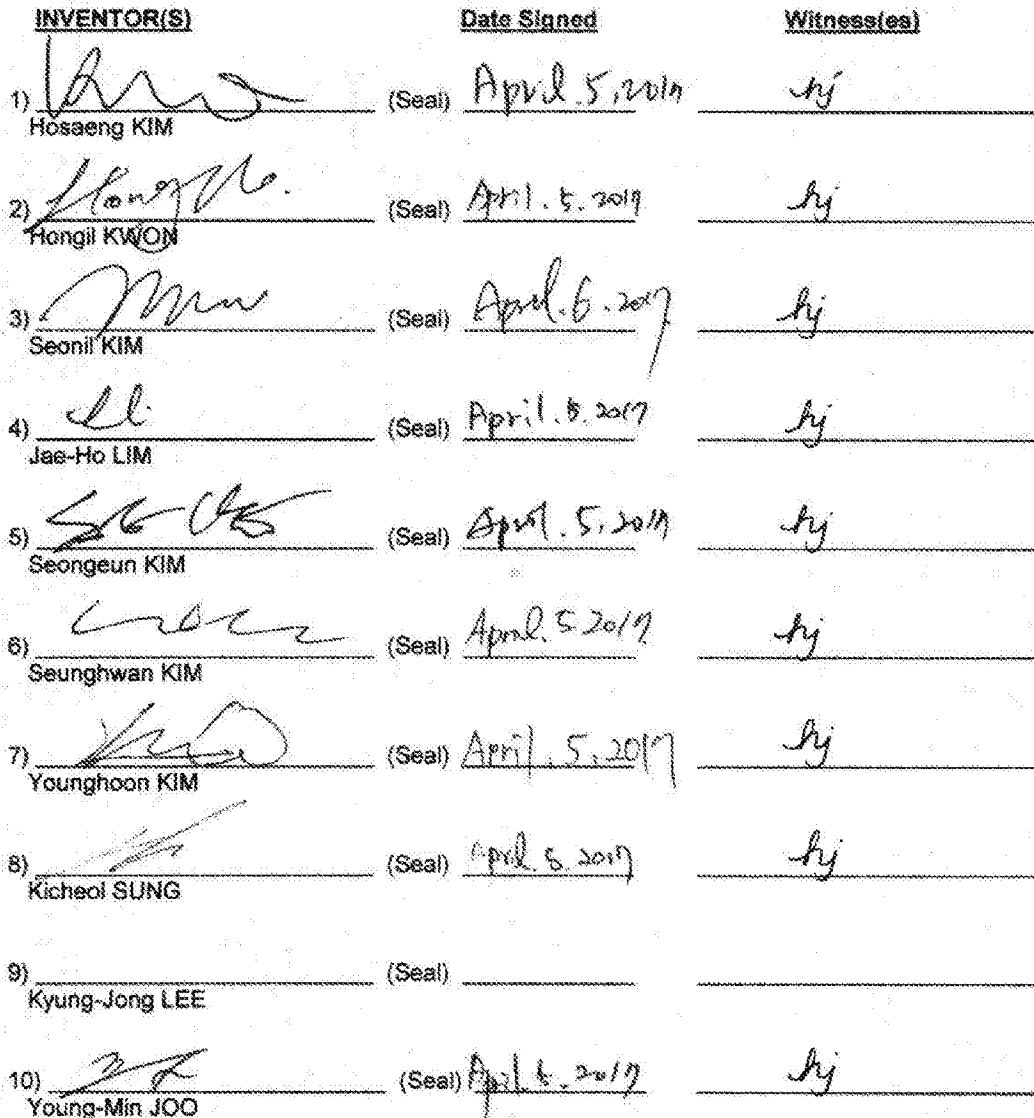 INVENTOR(S) Date Signed Witness(es)
1) (Seal) April. 5, 2017 hj
Hosaeng KIM
2) (Seal) April. 5. 2017 hj
Hongil KWON
3) (Seal) April. 6. 2017 hj
Seonil KIM
4) (Seal) April. 5. 2017 hj
Jae-Ho LIM
5) (Seal) April. 5, 2017 hj
Seongeun KIM
6) (Seal) April. 5 2017 hj
Seunghwan KIM
7) (Seal) April. 5, 2017 hj
Younghoon KIM
8) (Seal) April. 5. 2017 hj
Kicheol SUNG
9) (Seal)
Kyung-Jong LEE
10) (Seal) April 2017 hj
Young-Min JOO